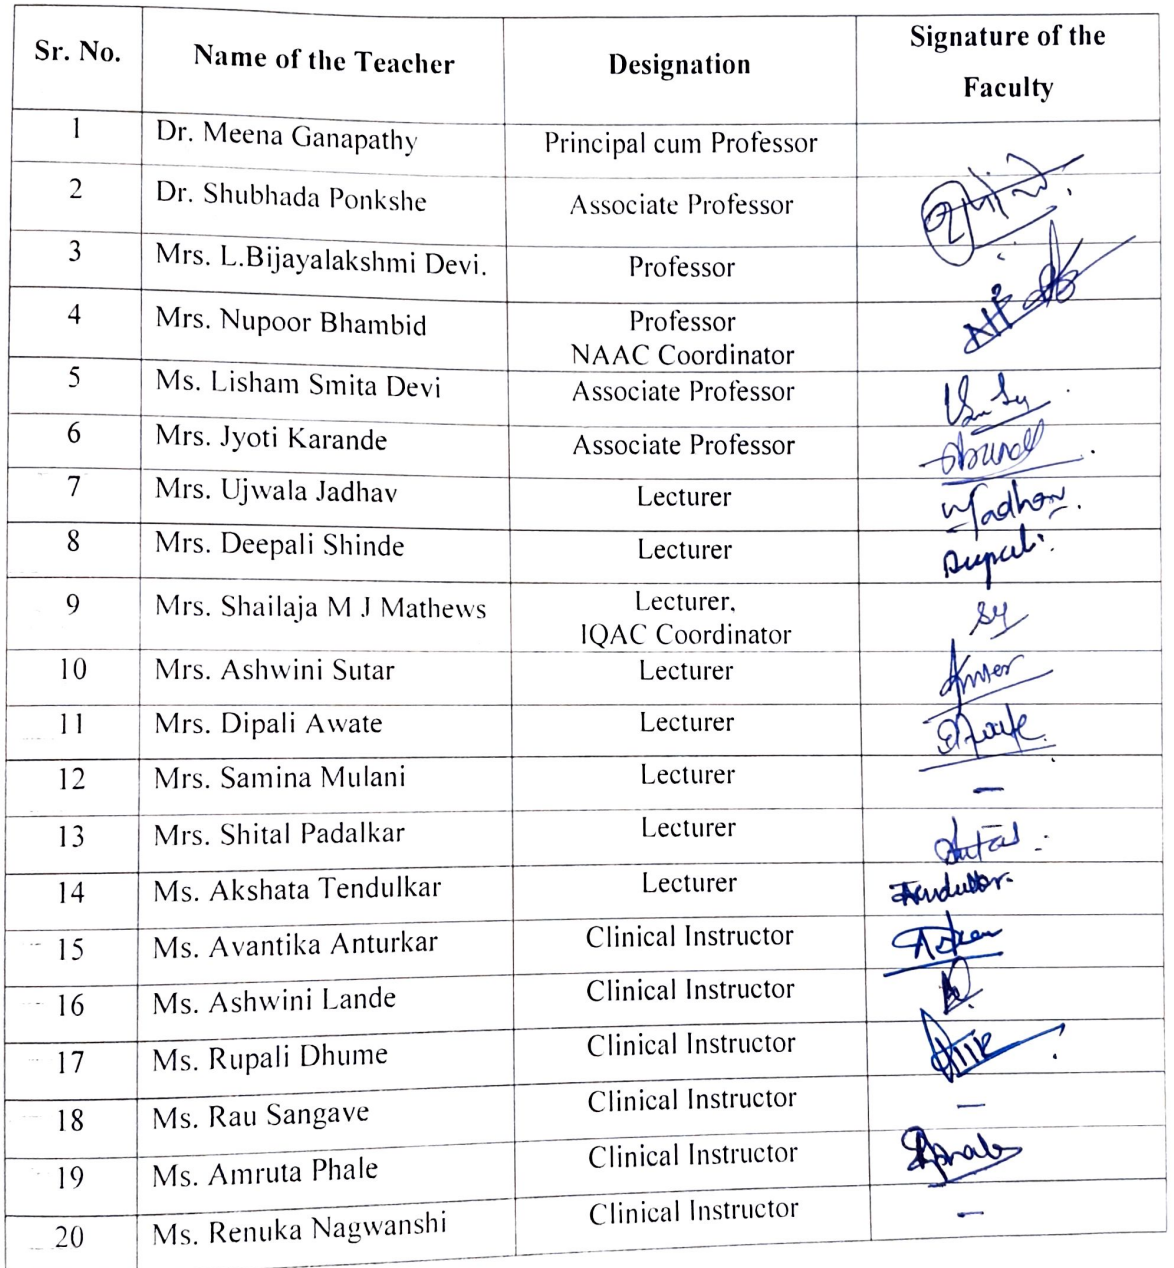 Sr. No. Name of the Teacher Designation Signature of the Faculty
1 Dr. Meena Ganapathy Principal cum Professor
2 Dr. Shubhada Ponkshe Associate Professor
3 Mrs. L.Bijayalakshmi Devi. Professor
4 Mrs. Nupoor Bhambid Professor
NAAC Coordinator
5 Ms. Lisham Smita Devi Associate Professor
6 Mrs. Jyoti Karande Associate Professor
7 Mrs. Ujwala Jadhav Lecturer
8 Mrs. Deepali Shinde Lecturer
9 Mrs. Shailaja M J Mathews Lecturer,
IQAC Coordinator
10 Mrs. Ashwini Sutar Lecturer
11 Mrs. Dipali Awate Lecturer
12 Mrs. Samina Mulani Lecturer –
13 Mrs. Shital Padalkar Lecturer
14 Ms. Akshata Tendulkar Lecturer
15 Ms. Avantika Anturkar Clinical Instructor
16 Ms. Ashwini Lande Clinical Instructor
17 Ms. Rupali Dhume Clinical Instructor
18 Ms. Rau Sangave Clinical Instructor –
19 Ms. Amruta Phale Clinical Instructor
20 Ms. Renuka Nagwanshi Clinical Instructor –